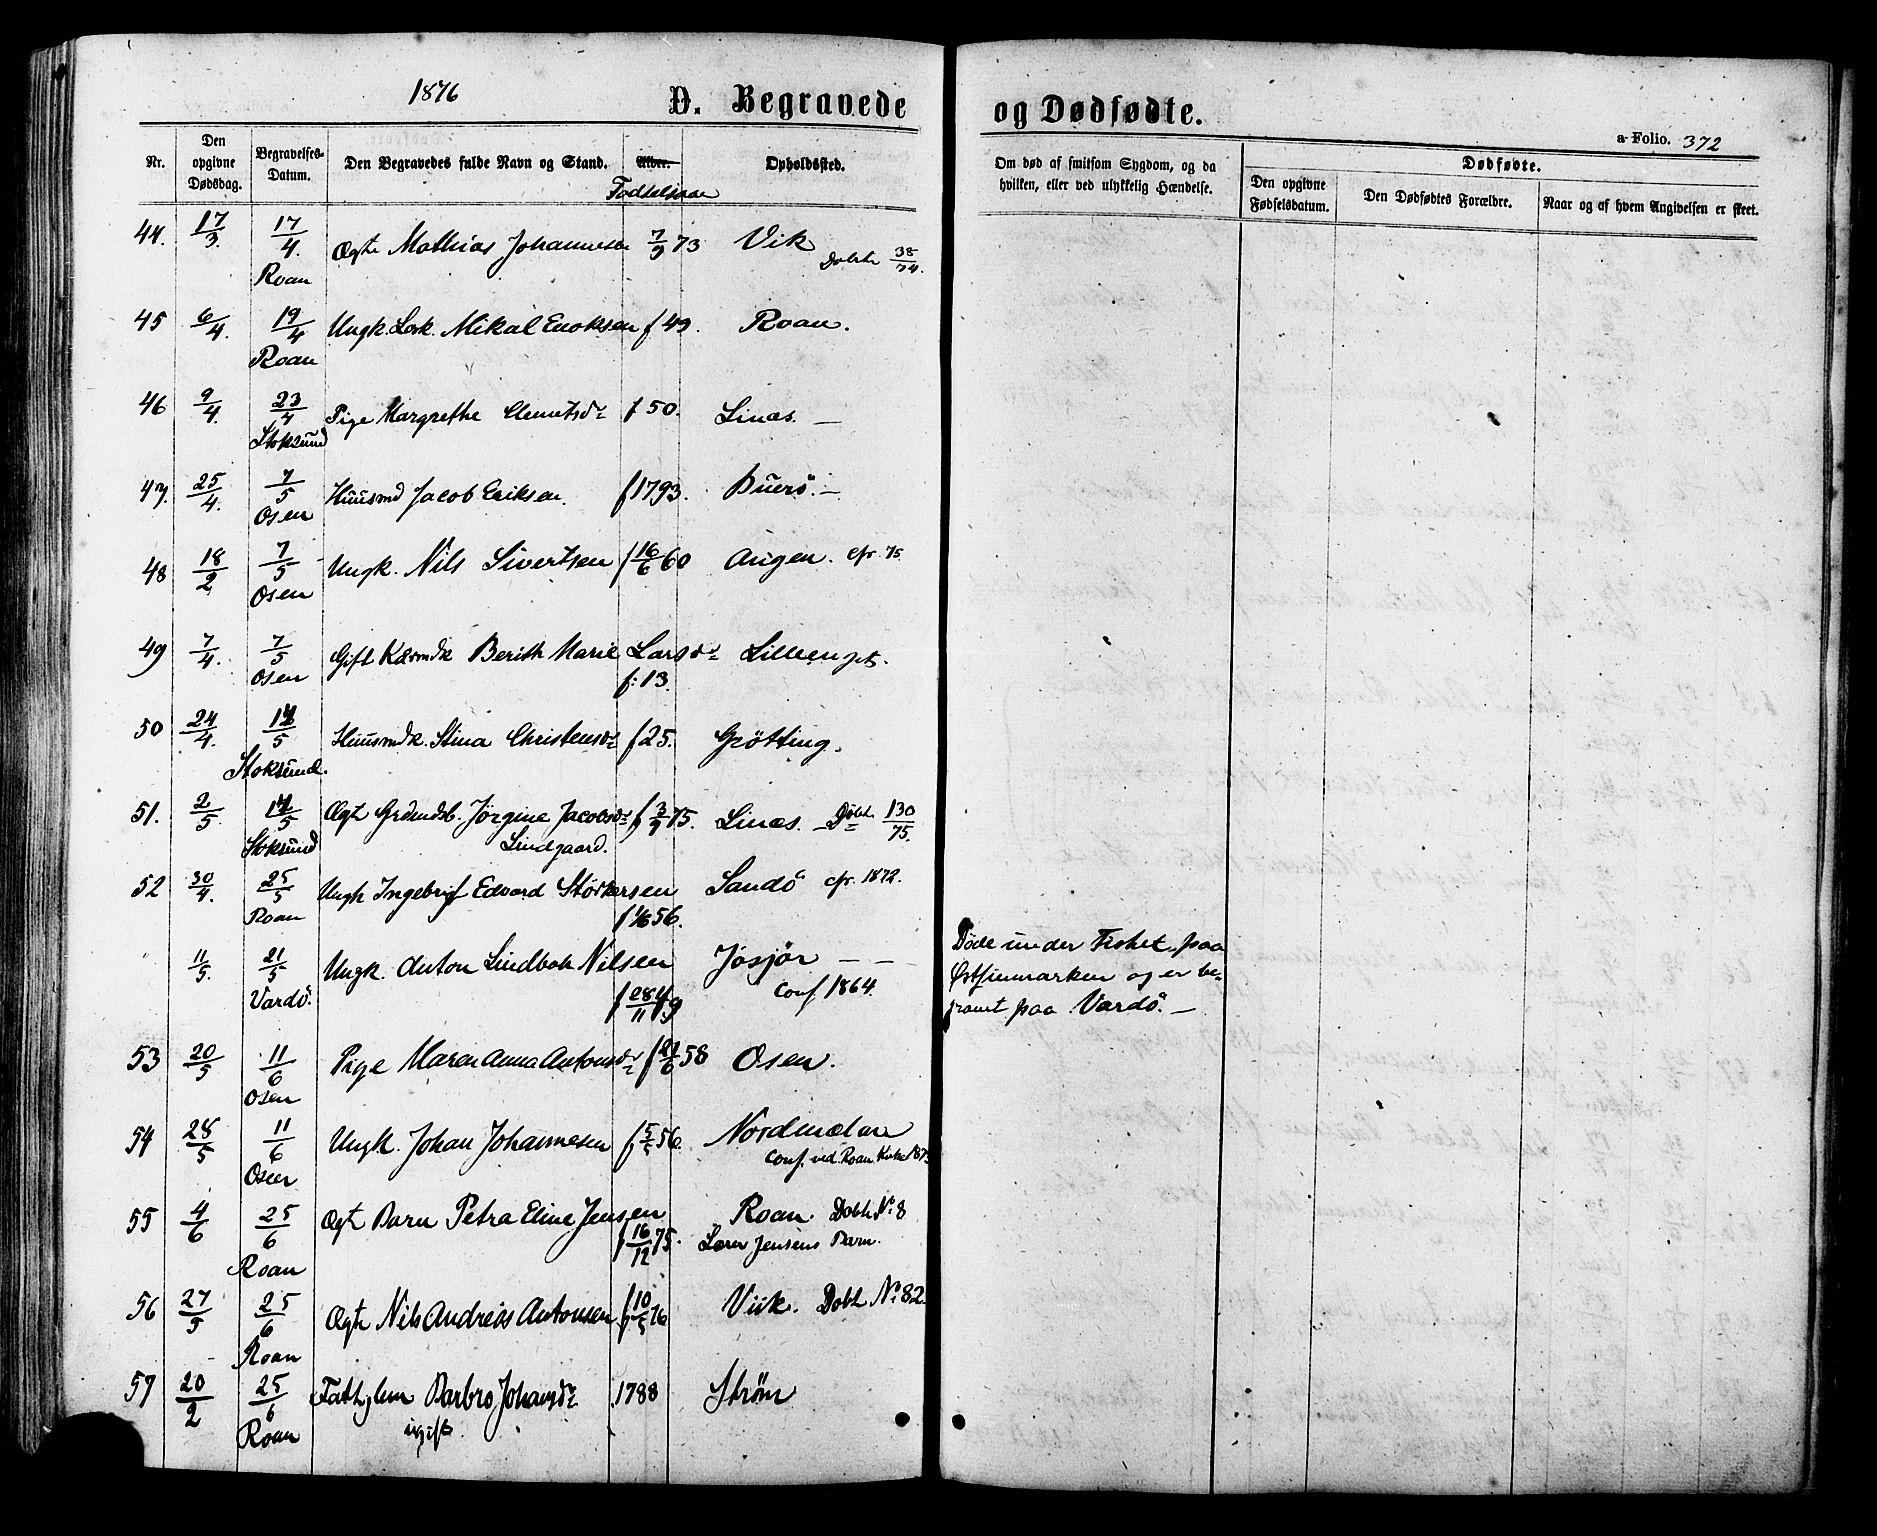 1876
D. Begravede
og Dødfødte.
a Folio. 372
Nr.
Den opgivne Dødsdag.
Begravelses-Datum.
Den Begravedes fulde Navn og Stand.
Alder.
Fødselsaar
Opholdssted.
Om død af smitsom Sygdom, og da hvilken, eller ved ulykkelig Hændelse.
Dødfødte.
Den opgivne Fødselsdatum.
Den Dødfødtes Forældre.
Naar og af hvem Angivelsen er skeet.
44. 17/3. 17/4. Ægte Mathias Johannesen 7/9 73 Vik
Roan Dobte 38/74.
45 6/4. 19/4 Ungk. Losk. Mikal Enoksen f 49. Roan.
Roan
46 9/4. 23/4 Pige Margrethe Clemetsdr f 50. Linæs. —
Stoksund
47. 25/4. 7/5 Huusmd Jacob Eriksen. f 1793. Buerö. —
Osen
48 18/2 7/5 Ungk. Nils Sivertsen f 16/6 60 Angen. cfr. 75
Osen
49 7/4. 7/5 Gift Kaarmdk Berith Marie Larsdr Lilleenget.
Osen f: 13.
50 24/4. 14/5 Huusmdk. Stina Christensdr f 25. Grötting.
Stoksund.
51. 2/5. 14/5 Ægt Grdmdsb. Jørgine Jacobsdr f 3/9 75. Linæs. Döbt. 130/75.
Stoksund Lindgaard.
52 30/4. 25/5 Ungk Ingebrigt Edvard Størkersen Sandö cfr. 1872.
Roan f 1/6 56.
11/5. 21/5 Ungk. Anton Lindbak Nilsen Josjør — —
Vardö. f 28/11 49 conf 1864.
Döde under Fisket paa
Østfinmarken og er be-
gravet paa Vardö. —
53 20/5 11/6 Pige Maren Anna Antonsdr f 21/6 58 Osen.
Osen
54 28/5 11/6 Ungk. Johan Johannesen f 5/5 56. Nordmelan
Osen Conf. ved Roan Kirke 187
55 4/6 25/6 Ægt Barn Petra Eline Jensen Roan. Dobte No 8
Roan f 16/12 75. Lærer Jensens Barn.
56 27/5 25/6 Ægte Nils Andreas Antonsen f 10/5 76 Viik. Dobt No 82.
Roan
57 20/2 25/6 Fattiglem Barbro Johansdr 1788 Strøm
Roan ugift.